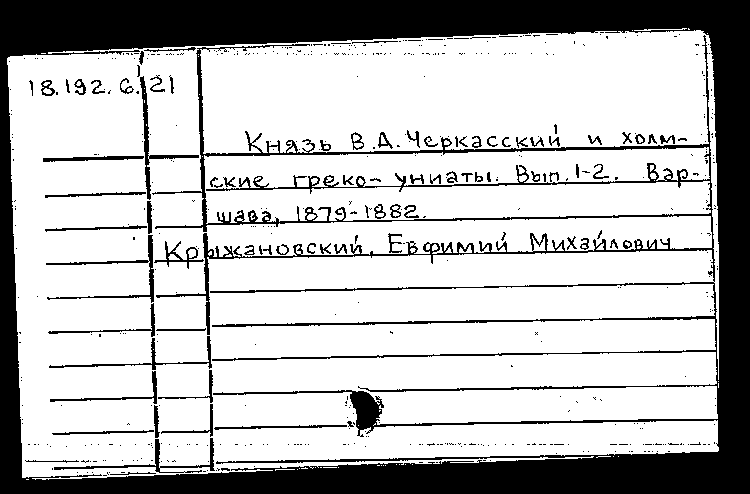 18.192.6.21
Князь В.А. Черкасский и холм-
ские греко-униаты. Вып.1-2. Вар-
шава, 1879-1882.
Крыжановский, Евфимий Михайлович